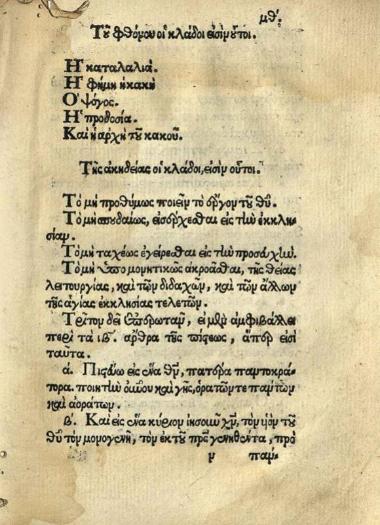 μθ´.
Τȣ͂ φθόνου οἱ κλάδοι εἰσὶν οὗτοι.
Ἡ καταλαλιά.
Ἡ φήμη ἡ κακὴ
Ὁ ψόγος.
Ἡ προδοσία.
Καὶ ἡ ἀρχὴ τȣ͂ κακοῦ.
Τῆς ἀκηδείας οἱ κλάδοι, εἰσὶν οὗτοι.
Τὸ μὴ προθύμως ποιεῖν τὸ ἔργον τȣ͂ θῦ.
Τὸ μὴ σπουδαίως, εἰσέρχεσθαι εἰς τὴν ἐκκλη-
σίαν.
Τὸ μὴ ταχέως ἐγείρεσθαι εἰς τὴν προσευχήν.
Τὸ μὴ ὑπομονητικῶς ἀκροᾶσθαι, τῆς θείας
λειτουργίας, καὶ τῶν διδαχῶν, καὶ τῶν ἄλλων
τῆς ἁγίας ἐκκλησίας τελετῶν.
Τρίτον δεῖ ἐπερωτᾶν, εἰ μὲν ἀμφιβάλλει
περὶ τὰ ιβ´. ἄρθρα τῆς πίστεως, ἅπερ εἰσὶ
ταῦτα.
ά. Πιστεύω εἰς ἕνα θν, πατέρα παντοκρά-
τορα. ποιητὴν οὐνοῦ καὶ γῆς, ὁρατῶν τε πάντων
καὶ ἀοράτων.
β´. Καὶ εἰς ἕνα κύριον ἰησοιῦ χν, τὸν υἱὸν τȣ͂
θῦ τὸν μονογενῆ, τὸν ἐκ τȣ͂ πρς γεννηθέντα, πρὸ
ν παν-